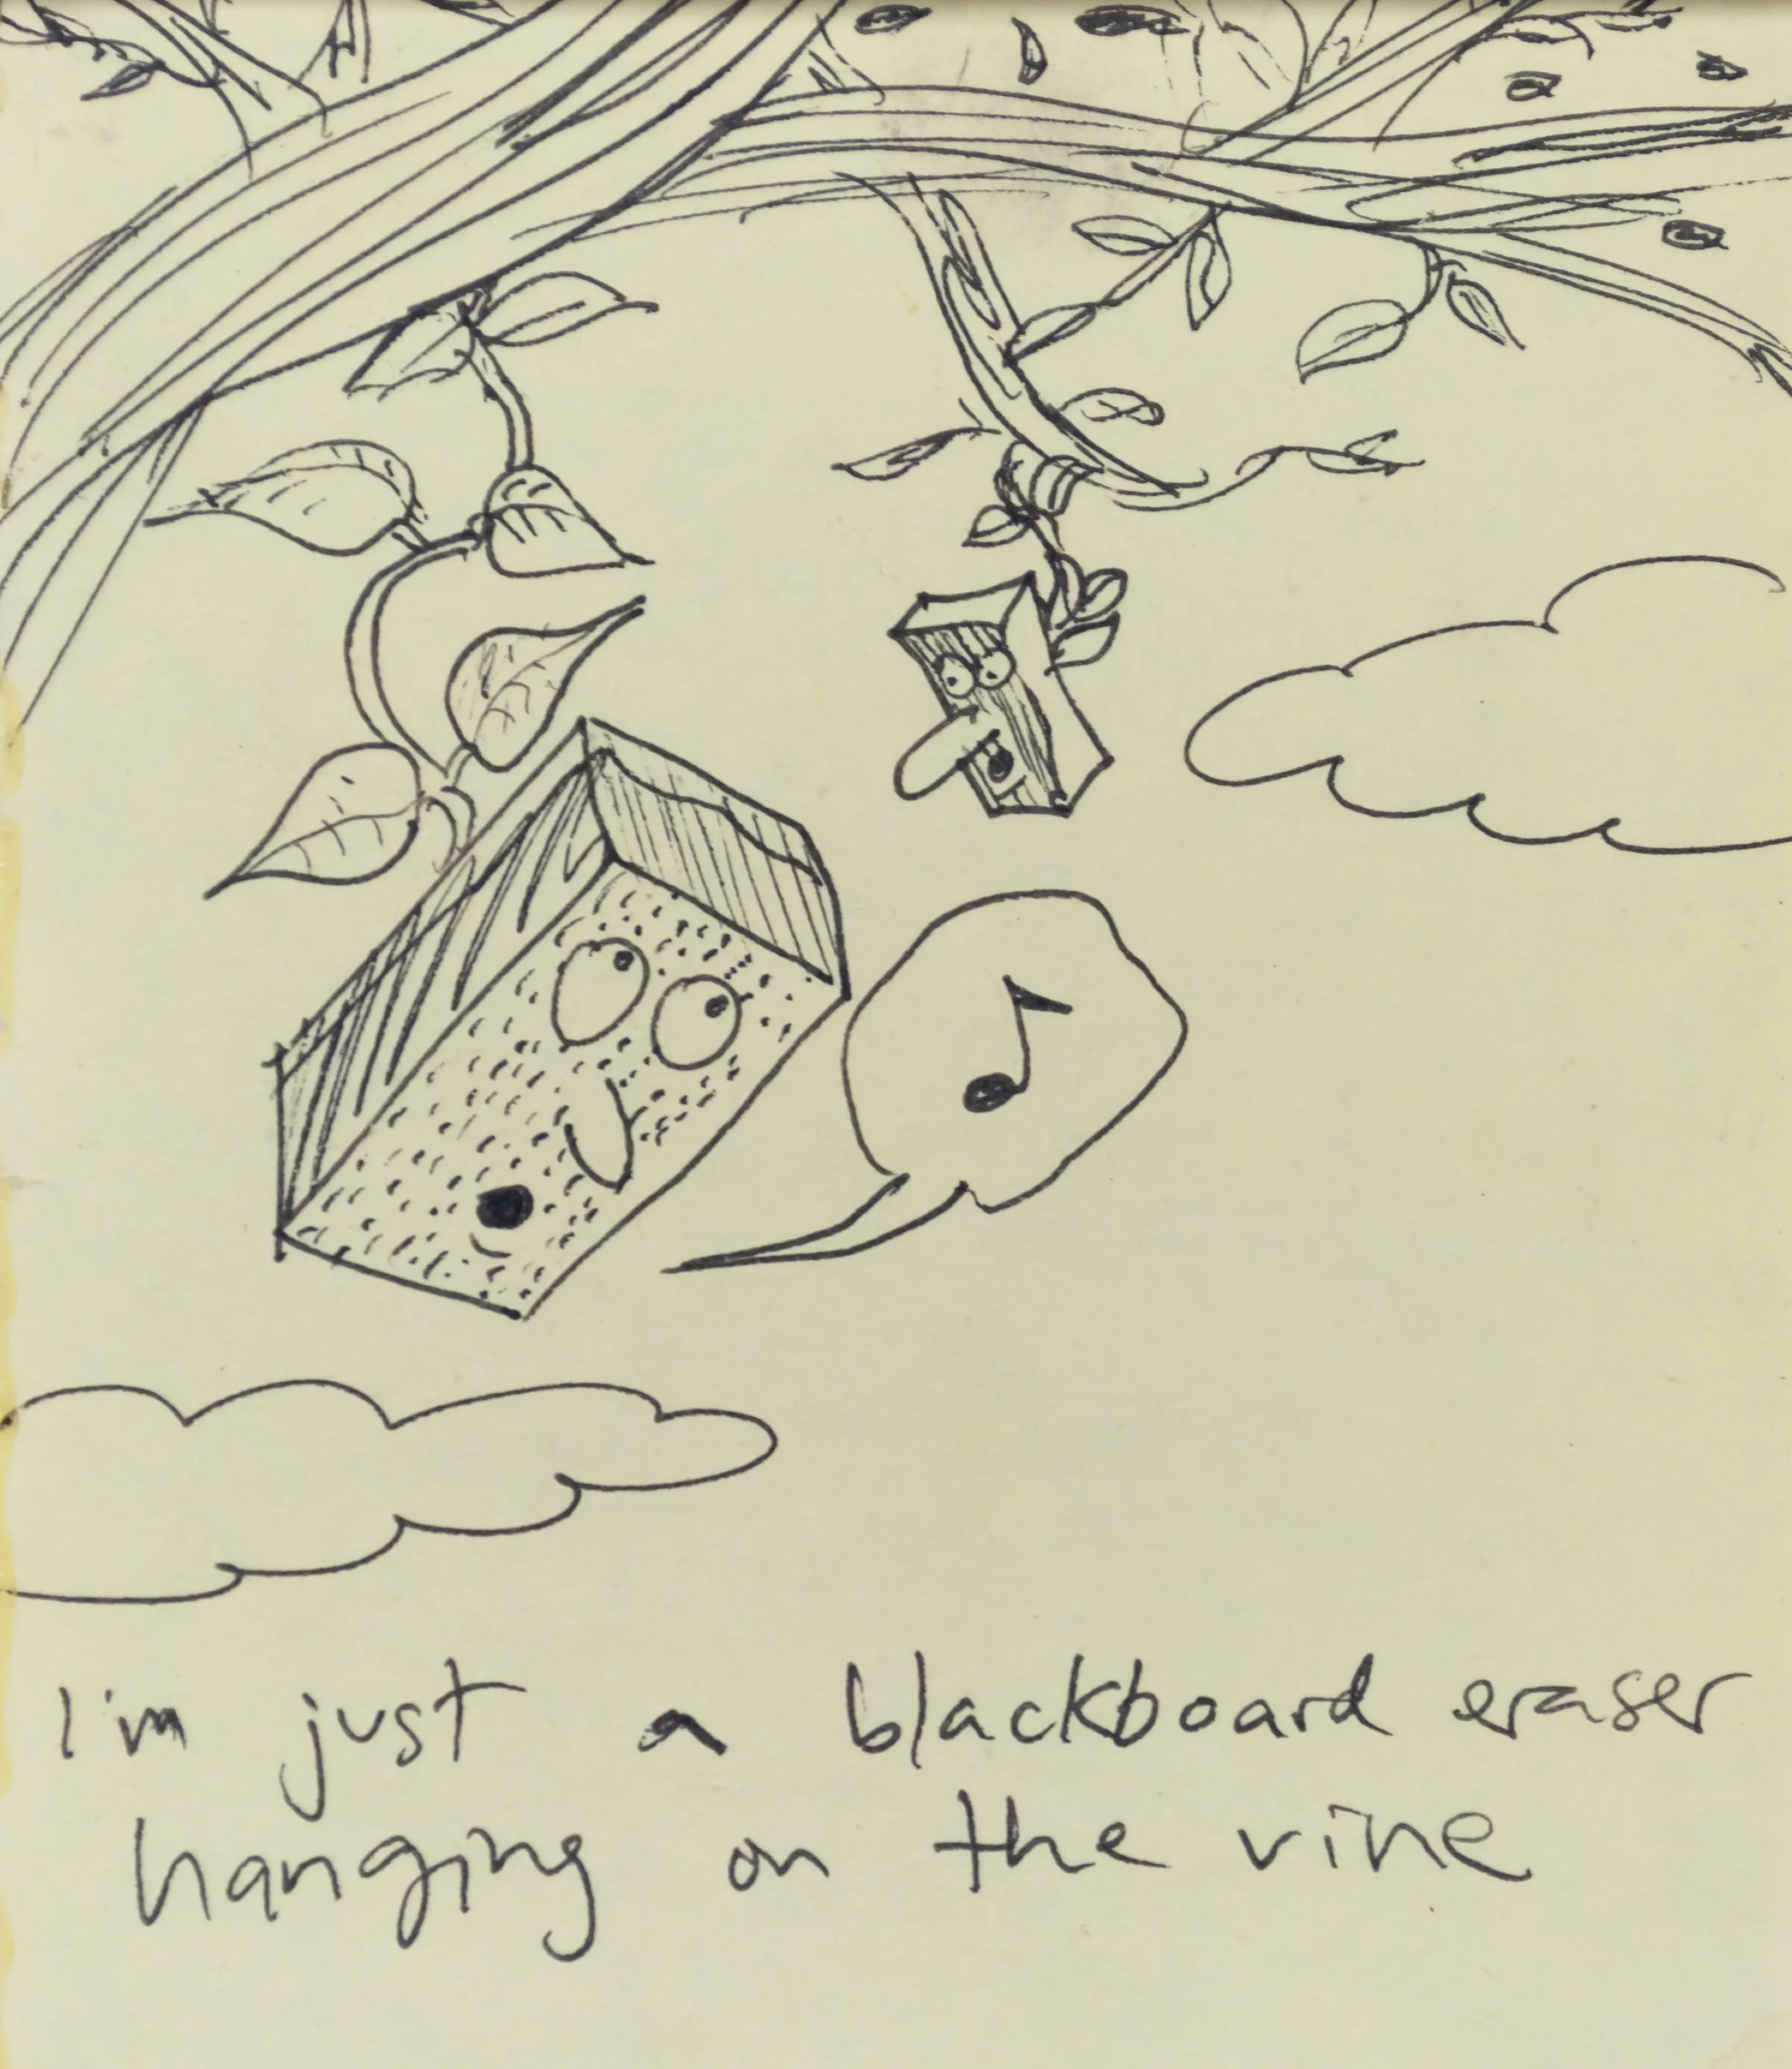 I'm just a blackboard eraser
hanging on the vine